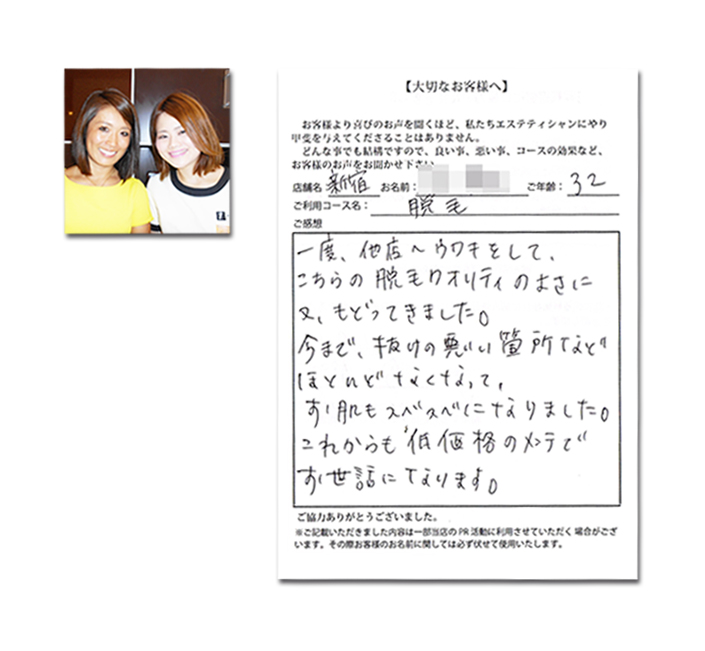 【大切なお客様へ】
お客様より喜びのお声を聞くほど、私たちエステティシャンにやり
甲斐を与えてくださることはありません。
どんな事でも結構ですので、良い事、悪い事、コースの効果など、
お客様のお声をお聞かせ下さい
店舗名 新宿 お名前: ご年齢: 32
ご利用コース名: 脱毛
ご感想
一度、他店へウワキをして、
こちらの脱毛クオリティのよさに
又、もどってきました。
今まで、抜けの悪い箇所など
ほとんどなくなって、
お肌もスベスベになりました。
これからも低価格のメンテで
お世話になります。
ご協力ありがとうございました。
※ご記載いただきました内容は一部当店のPR活動に利用させていただく場合がござ
います。その際お客様のお名前に関しては必ず伏せて使用いたします。